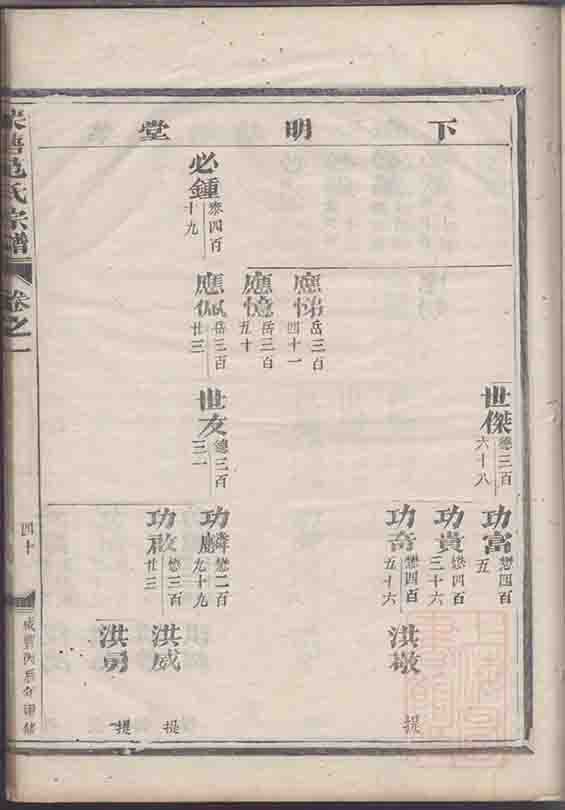 下明堂
必鍾
叅四百
十九
應怡
岳三百
四十一
應憶
岳三百
五十
應
岳三百
廿三
世傑
總三百
六十八
世友
總三百
三一
功富
懋四百
五
功貴
懋四百
三十六
功奇
懋四百
五十六
功麟
懋二百
九十九
功啟
懋三百
廿三
洪敬
提
洪威
提
洪勇
提
范氏宗譜
卷之一
四十
咸豐丙辰